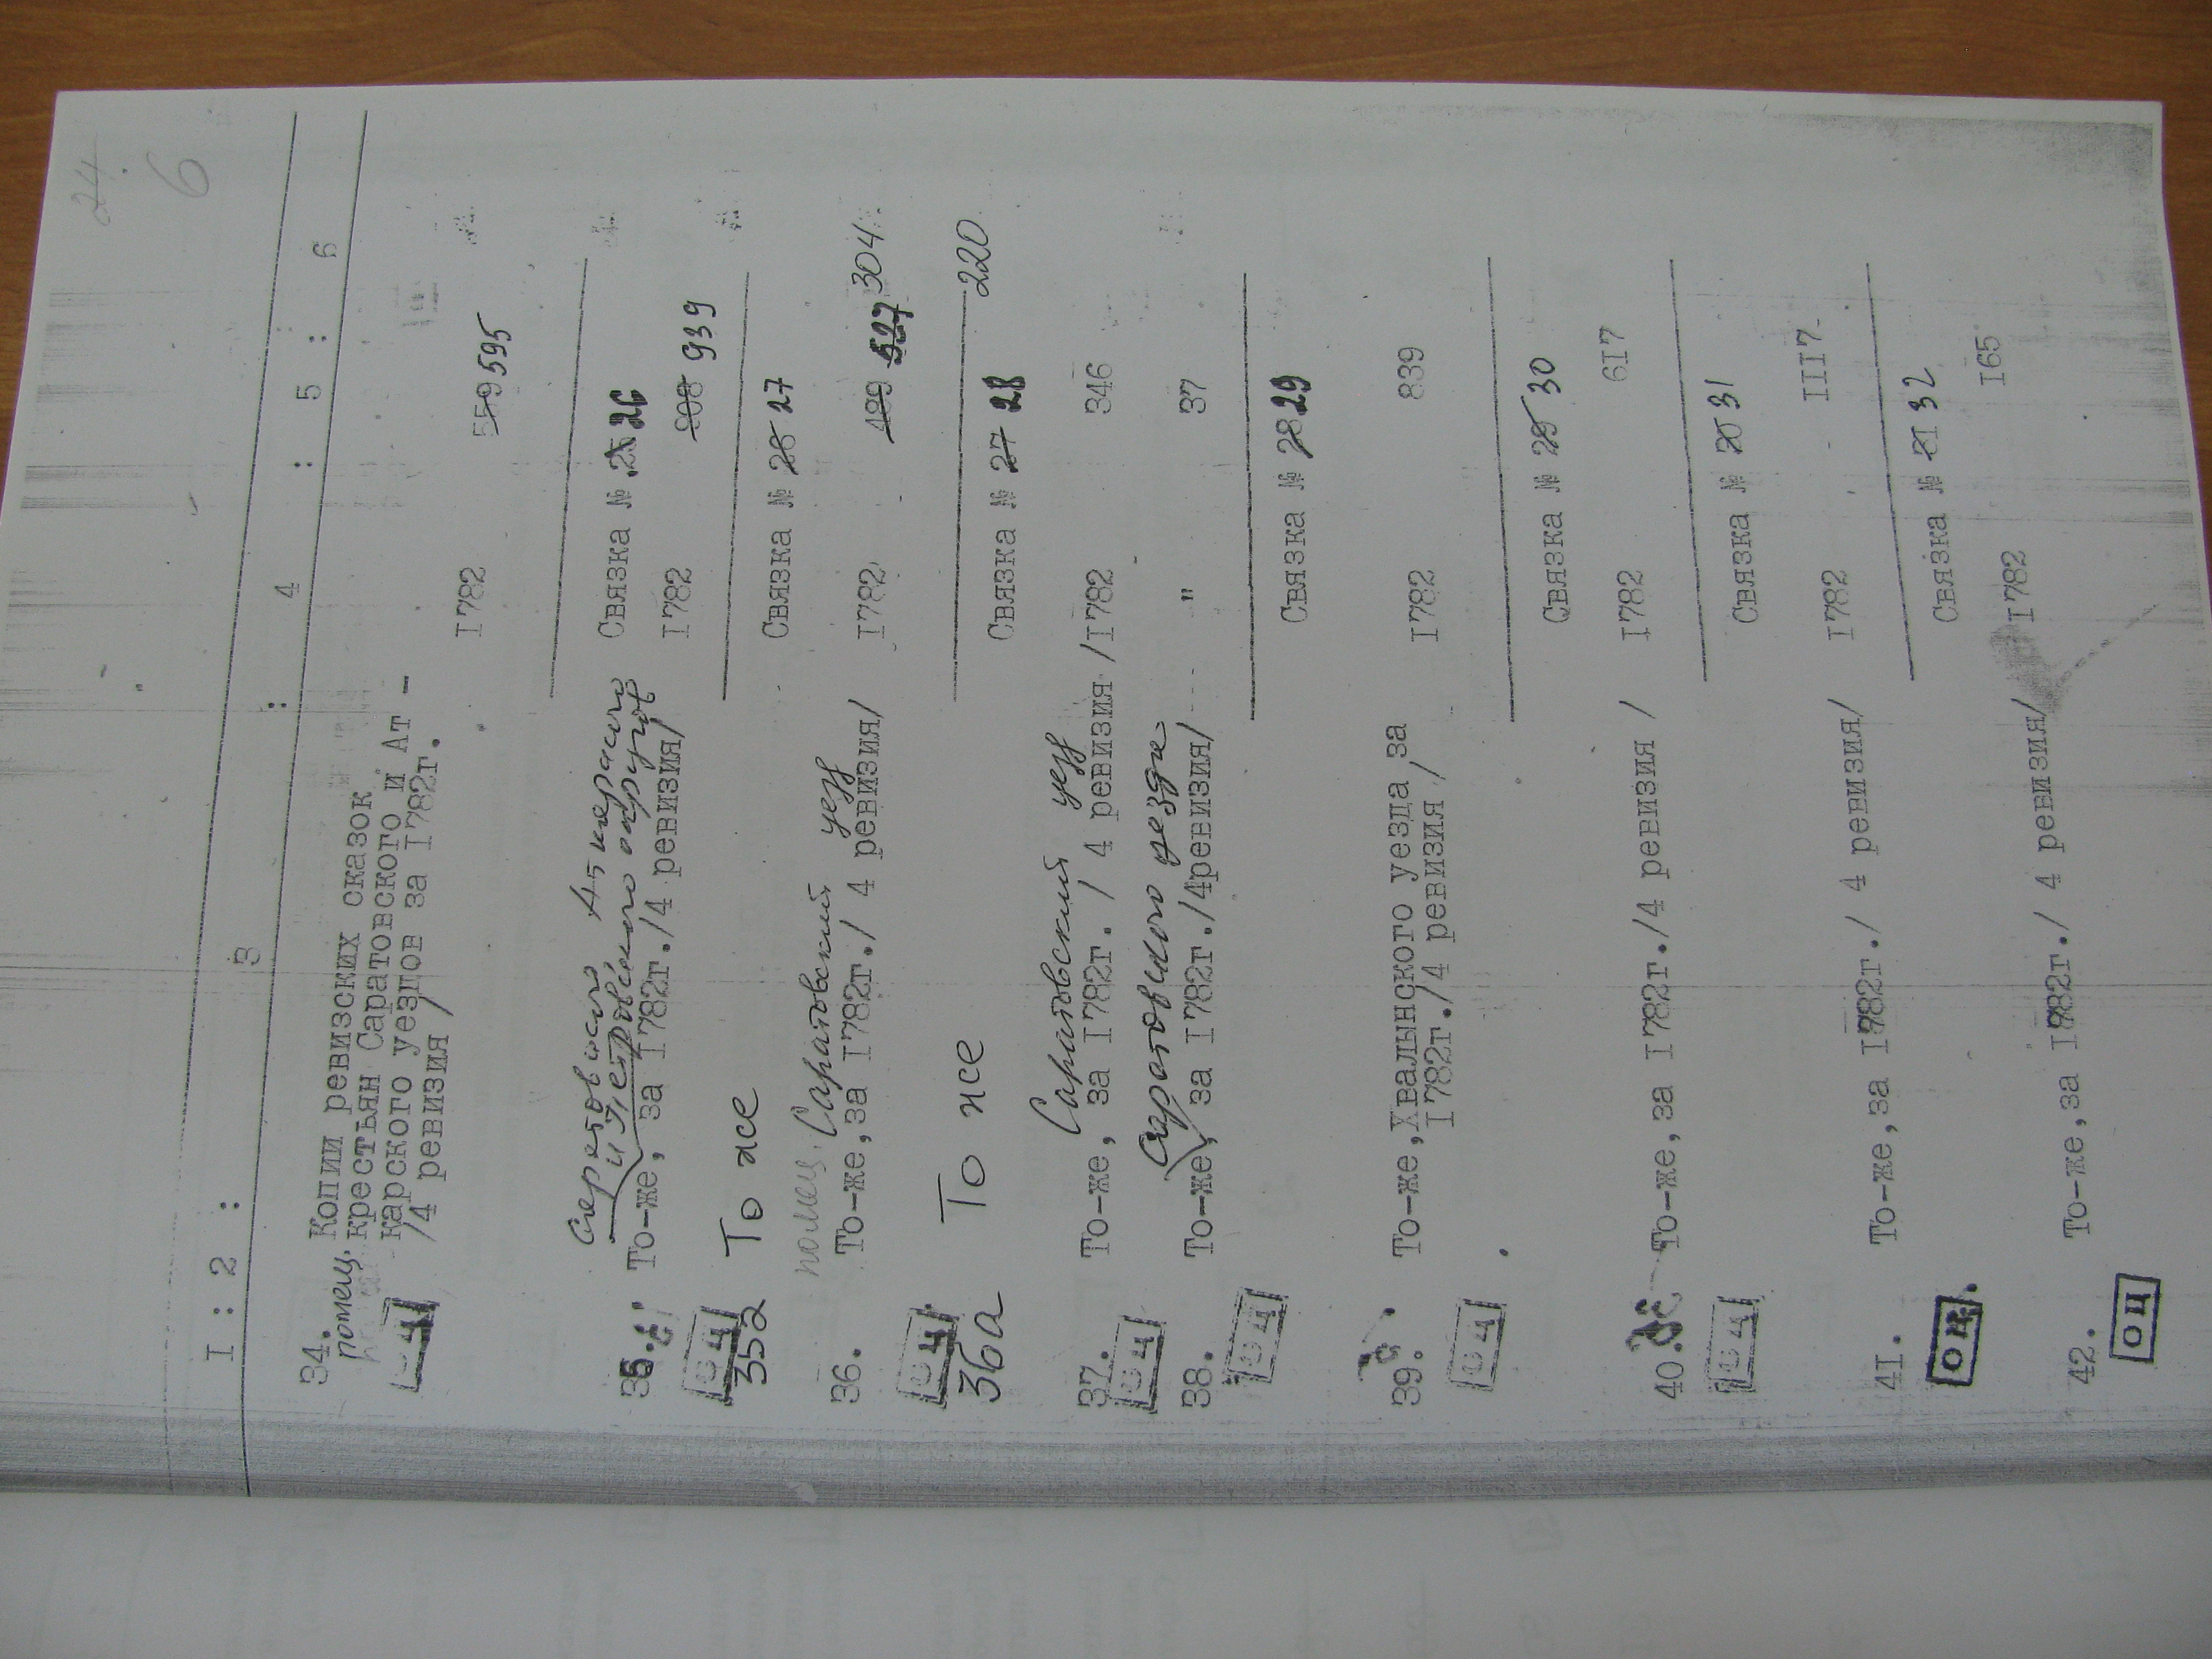 24.
6
I : 2 : 3 : 4 : 5 : 6
34. Копии ревизских сказок
помещ. крестьян Саратовского и Ат -
карского уездов за I782г.
/4 ревизия / I782 559 595
ОЦ
Связка № 25 26
Саратовского Аткарского
и Петровского округов
35. То-же, за I782г./4 ревизия/ I782 808 939
ОЦ
35а То же
Связка № 26 27
помещ. Саратовский уезд
36. То-же,за I782г./ 4 ревизия/ I782 489 527 304
ОЦ
36а То же 220
Связка № 27 28
Саратовский уезд
37. То-же, за I782г. / 4 ревизия /I782 346
ОЦ
Саратовского уезда
38. То-же, за I782г./4ревизия/ " 37
ОЦ
Связка № 28 29
39. То-же,Хвалынского уезда за
I782г./4 ревизия / I782 839
ОЦ
Связка № 29 30
40. То-же,за I782г./4 ревизия / I782 6I7
ОЦ
Связка № 20 31
4I. То-же,за I782г./ 4 ревизия/ I782 III7
ОЦ
Связка № 2I 32
42. То-же,за I782г./ 4 ревизия/ I782 I65
ОЦ